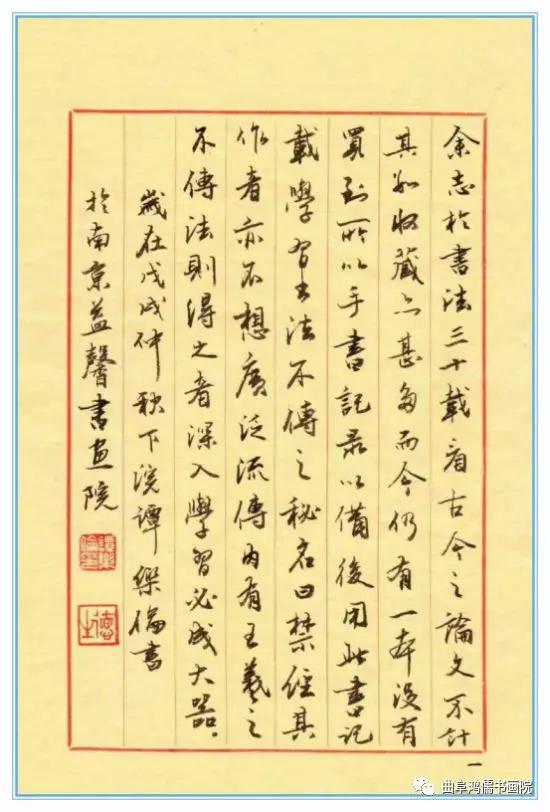 余志於书法三十载看古今之論文不计
其数收藏亦甚多而今仍有一本没有
買到所以手書記录以備後用此書記
載學習书法不傳之秘名曰禁经其
作者亦不想廣泛流傳内有王羲之
不傳法則得之者深入學習必成大器。
歲在戊戌仲秋下浣譚樂倫書
於南京益馨書画院
德生
一
曲阜鸿儒书画院